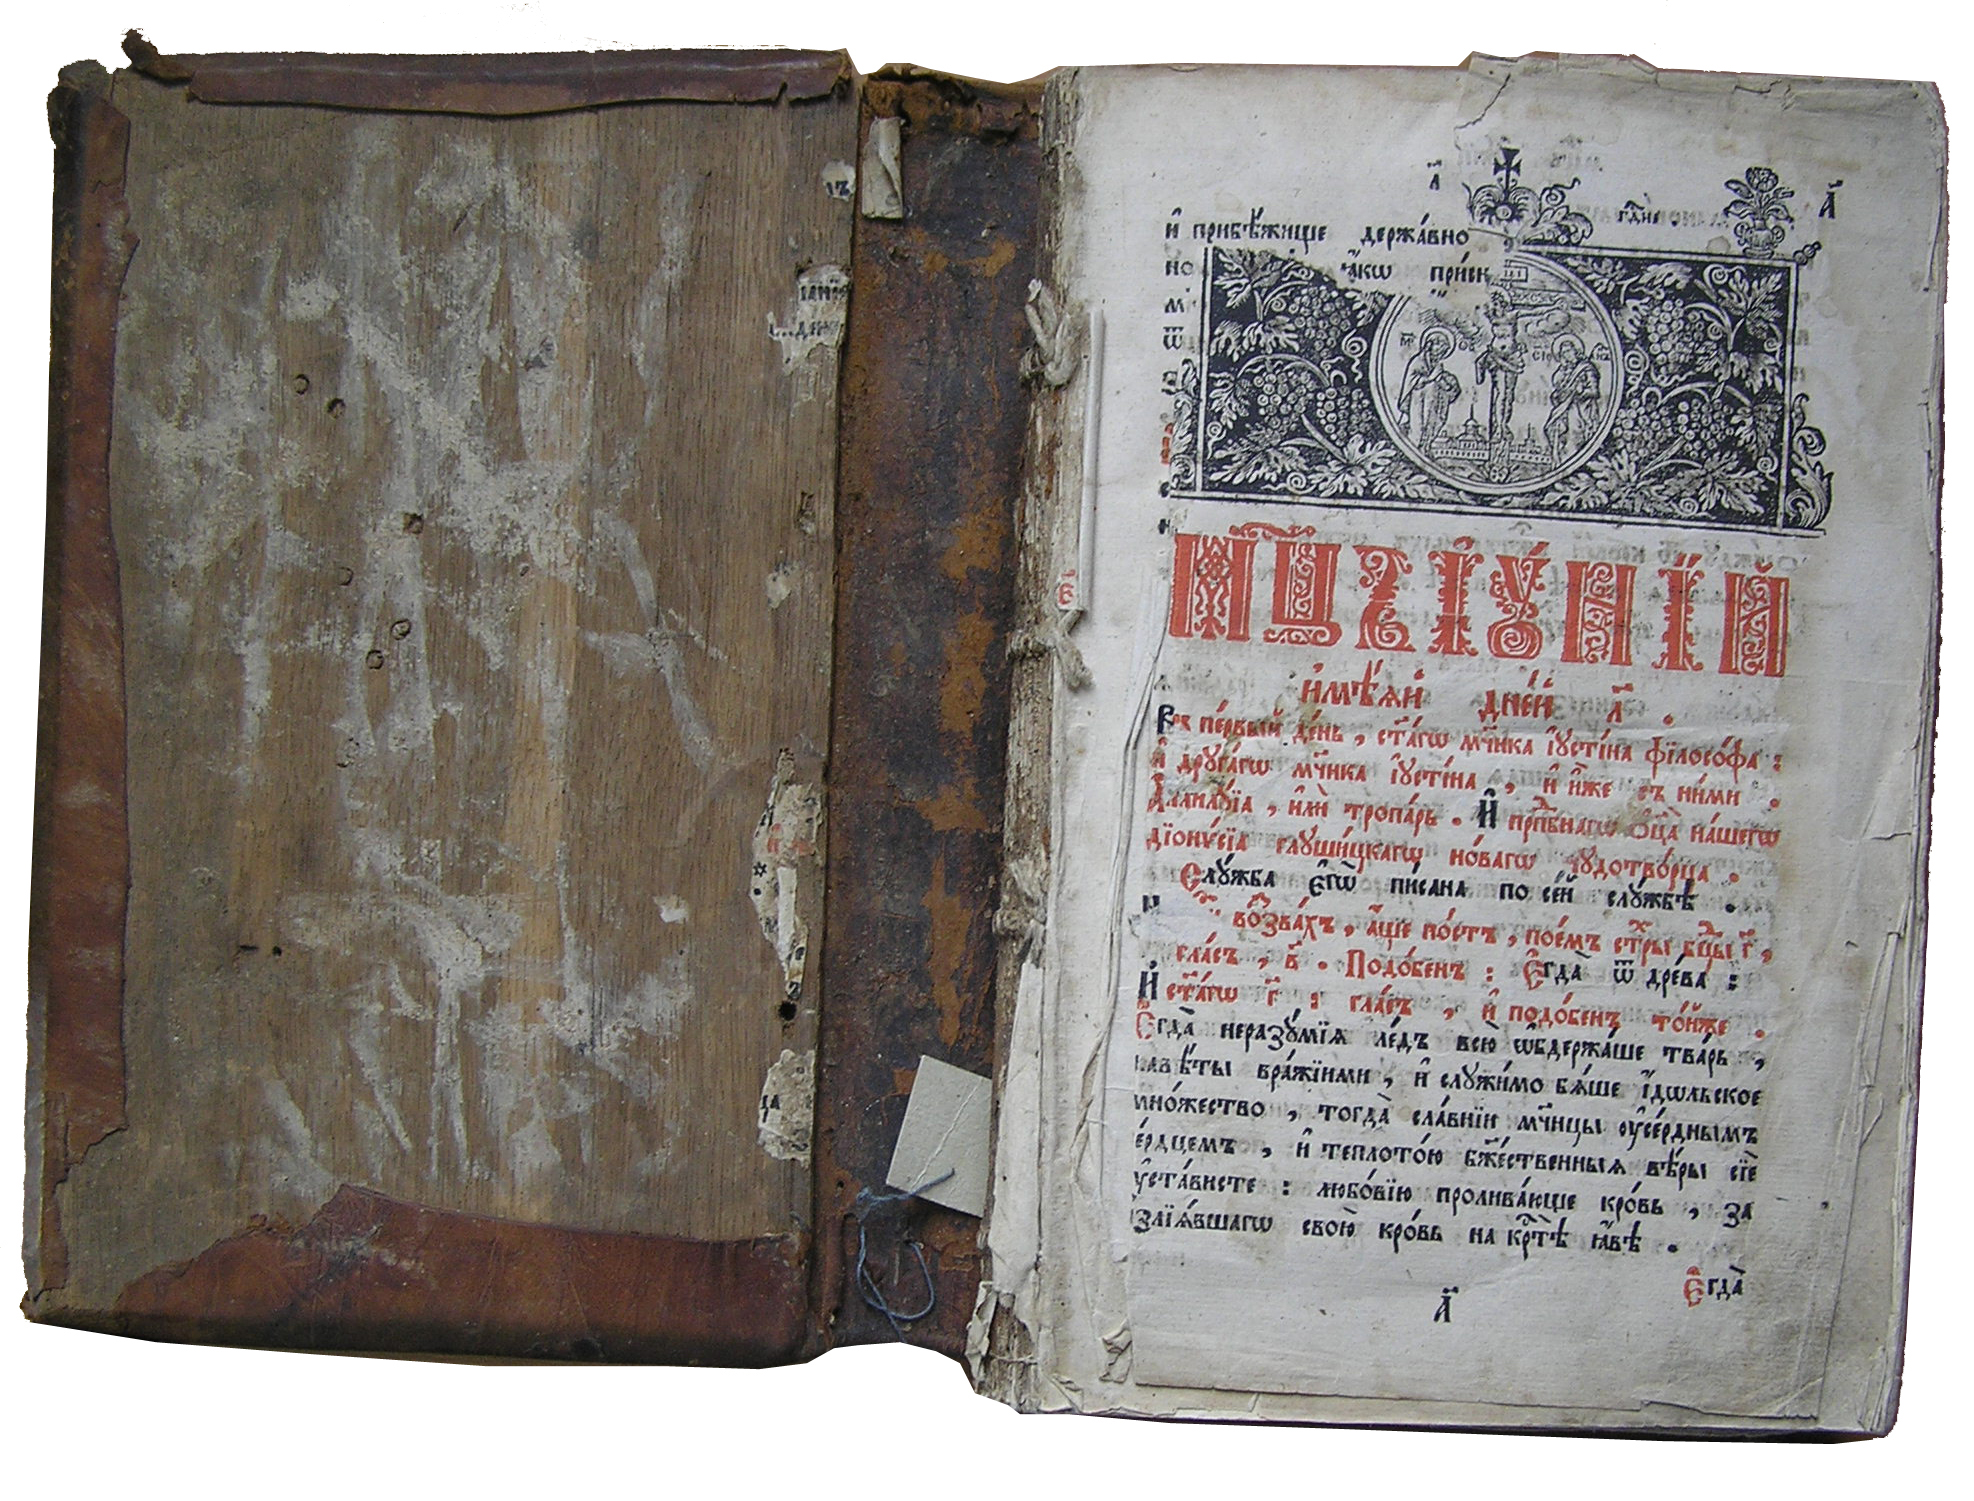 а҃
и҆ прибѣ́жище держа́вно
но ꙗ҆́кѡ при́сн
ѿ
М҃ЦЪ І҆У́НІЙ
и҆мѣ́ѧй дне́й л҃ .
пе́рвый де́нь , ст҃а́гѡ мч҃нка і҆усті́на фїлосо́фа :
и҆ друга́гѡ мч҃нка і҆усті́на , и҆ и҆́же съ ни́ми .
А҆ллилу́їа , и҆лѝ тропа́рь . И҆ прпⷣбнагѡ ѻ҆ц҃а̀ на́шегѡ
дїонѵ́сїа глушицкагѡ но́вагѡ чудотво́рца .
Слу́жба є҆гѡ̀ пи́сана по се́й слу́жбѣ .
воззва́хъ , а҆́ще по́стъ , пое́мъ стⷯры бц҃ы г҃ ,
гла́съ , в҃ . Подо́бенъ : Є҆гда̀ ѿ дре́ва :
И҆ ст҃а́гѡ г҃ : гла́съ , и҆ подо́бенъ то́йже .
Є҆гда̀ неразу́мїѧ ле́дъ всю̀ ѡ҆бдержа́ше тва́рь ,
навѣ́ты вра́жїими , и҆ служи́мо бѧ́ше і҆́дѡльское
мно́жество , тогда̀ сла́внїи мч҃нцы ᲂу҆се́рднымъ
се́рдцемъ , и҆ теплото́ю бж҃е́ственныѧ вѣ́ры сїѐ
ᲂу҆ста́висте : любо́вїю пролива́юще кро́вь , за
злїѧ́вшагѡ свою̀ кро́вь на крⷭ҇тѣ̀ ꙗ҆́вѣ .
Є҆гда̀
а҃